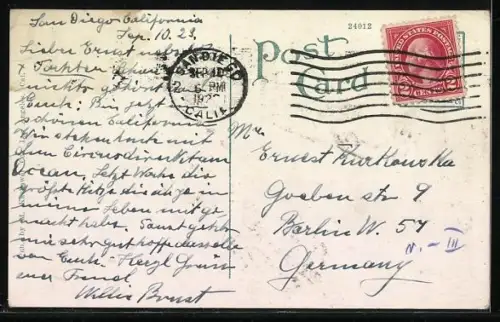 San Diego California
Sep. 10. 23.
Lieber Ernst nebst
Tochter
nichts gehört
Euch: Bin jetzt
schönen California
dem Circus direkt am
Ocean, Letzt Woche die
größte Hitze die ich je in
meine Leben mitge
macht habe. Sonst geht
mir sehr gut hoffe dasselbe
von Euch. Herzl Grüss
euer Freund
Willie
24012
Post
Card
SAN DIEGO
SEP 10
6 PM
CALIF.
UNITED STATES POSTAGE
2 CENTS 2
Mr
Ernest Kurkowska
Goeben str 9
Berlin W. 57
Germany